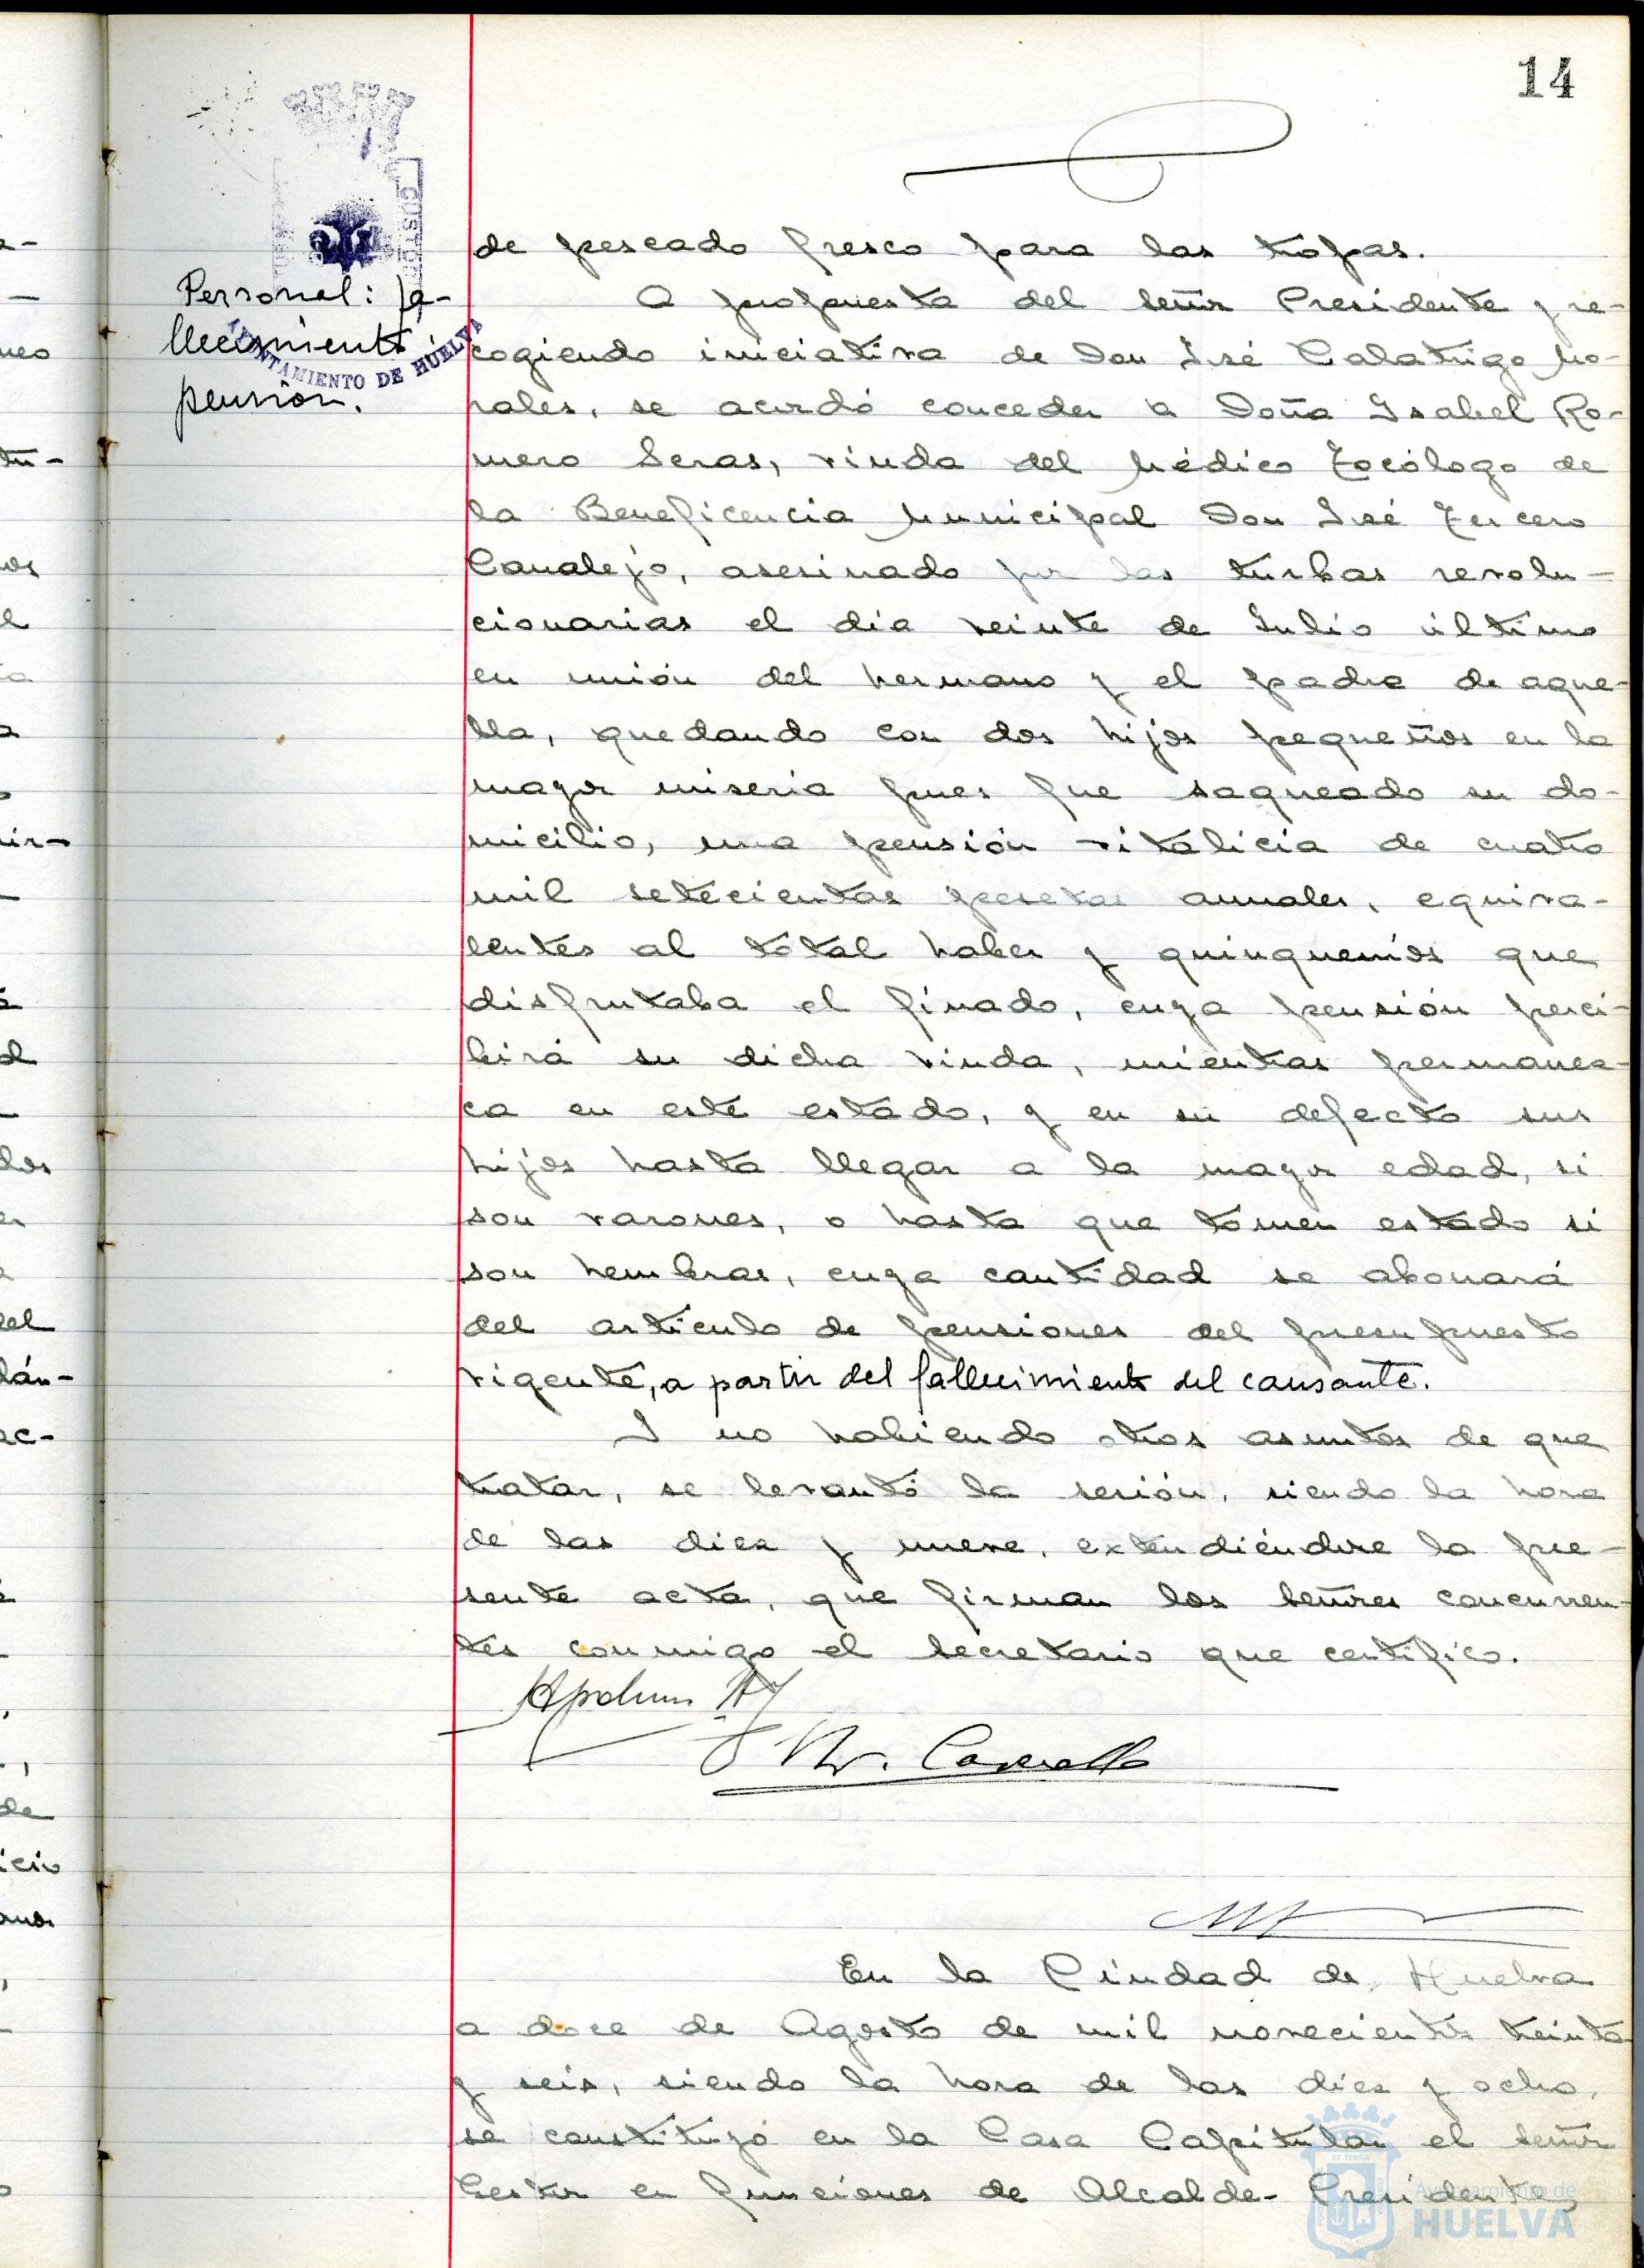 14
de pescado fresco para las tropas.
Personal: fa-
llecimiento
pensión.
AYUNTAMIENTO DE HUELVA
A propuesta del señor Presidente y re-
cogiendo iniciativa de Don José Calatrigo Mo-
rales, se acordó conceder a Doña Isabel Ro-
mero Seras, viuda del Médico Tocólogo de
la Beneficencia Municipal Don José Tercero
Canalejo, asesinado por las turbas revolu-
cionarias el día veinte de Julio último
en unión del hermano y el padre de aque-
lla, quedando con dos hijos pequeños en la
mayor miseria pues fue saqueado su do-
micilio, una pensión vitalicia de cuatro
mil setecientas pesetas anuales, equiva-
lentes al total haber y quinquenios que
disfrutaba el finado, cuya pensión perci-
birá su dicha viuda, mientras permanez-
ca en este estado, y en su defecto sus
hijos hasta llegar a la mayor edad, si
son varones, o hasta que tomen estado si
son hembras, cuya cantidad se abonará
del artículo de pensiones del presupuesto
vigente, a partir del fallecimiento del causante.
Y no habiendo otros asuntos de que
tratar, se levantó la sesión, siendo la hora
de las diez y nueve, extendiéndose la pre-
sente acta, que firman los señores concurren-
tes conmigo el secretario que certifico.
En la Ciudad de Huelva
a doce de Agosto de mil novecientos treinta
y seis, siendo la hora de las diez y ocho,
se constituyó en la Casa Capitular el señor
Gestor en funciones de Alcalde-Presidente,
Ayuntamiento de
HUELVA